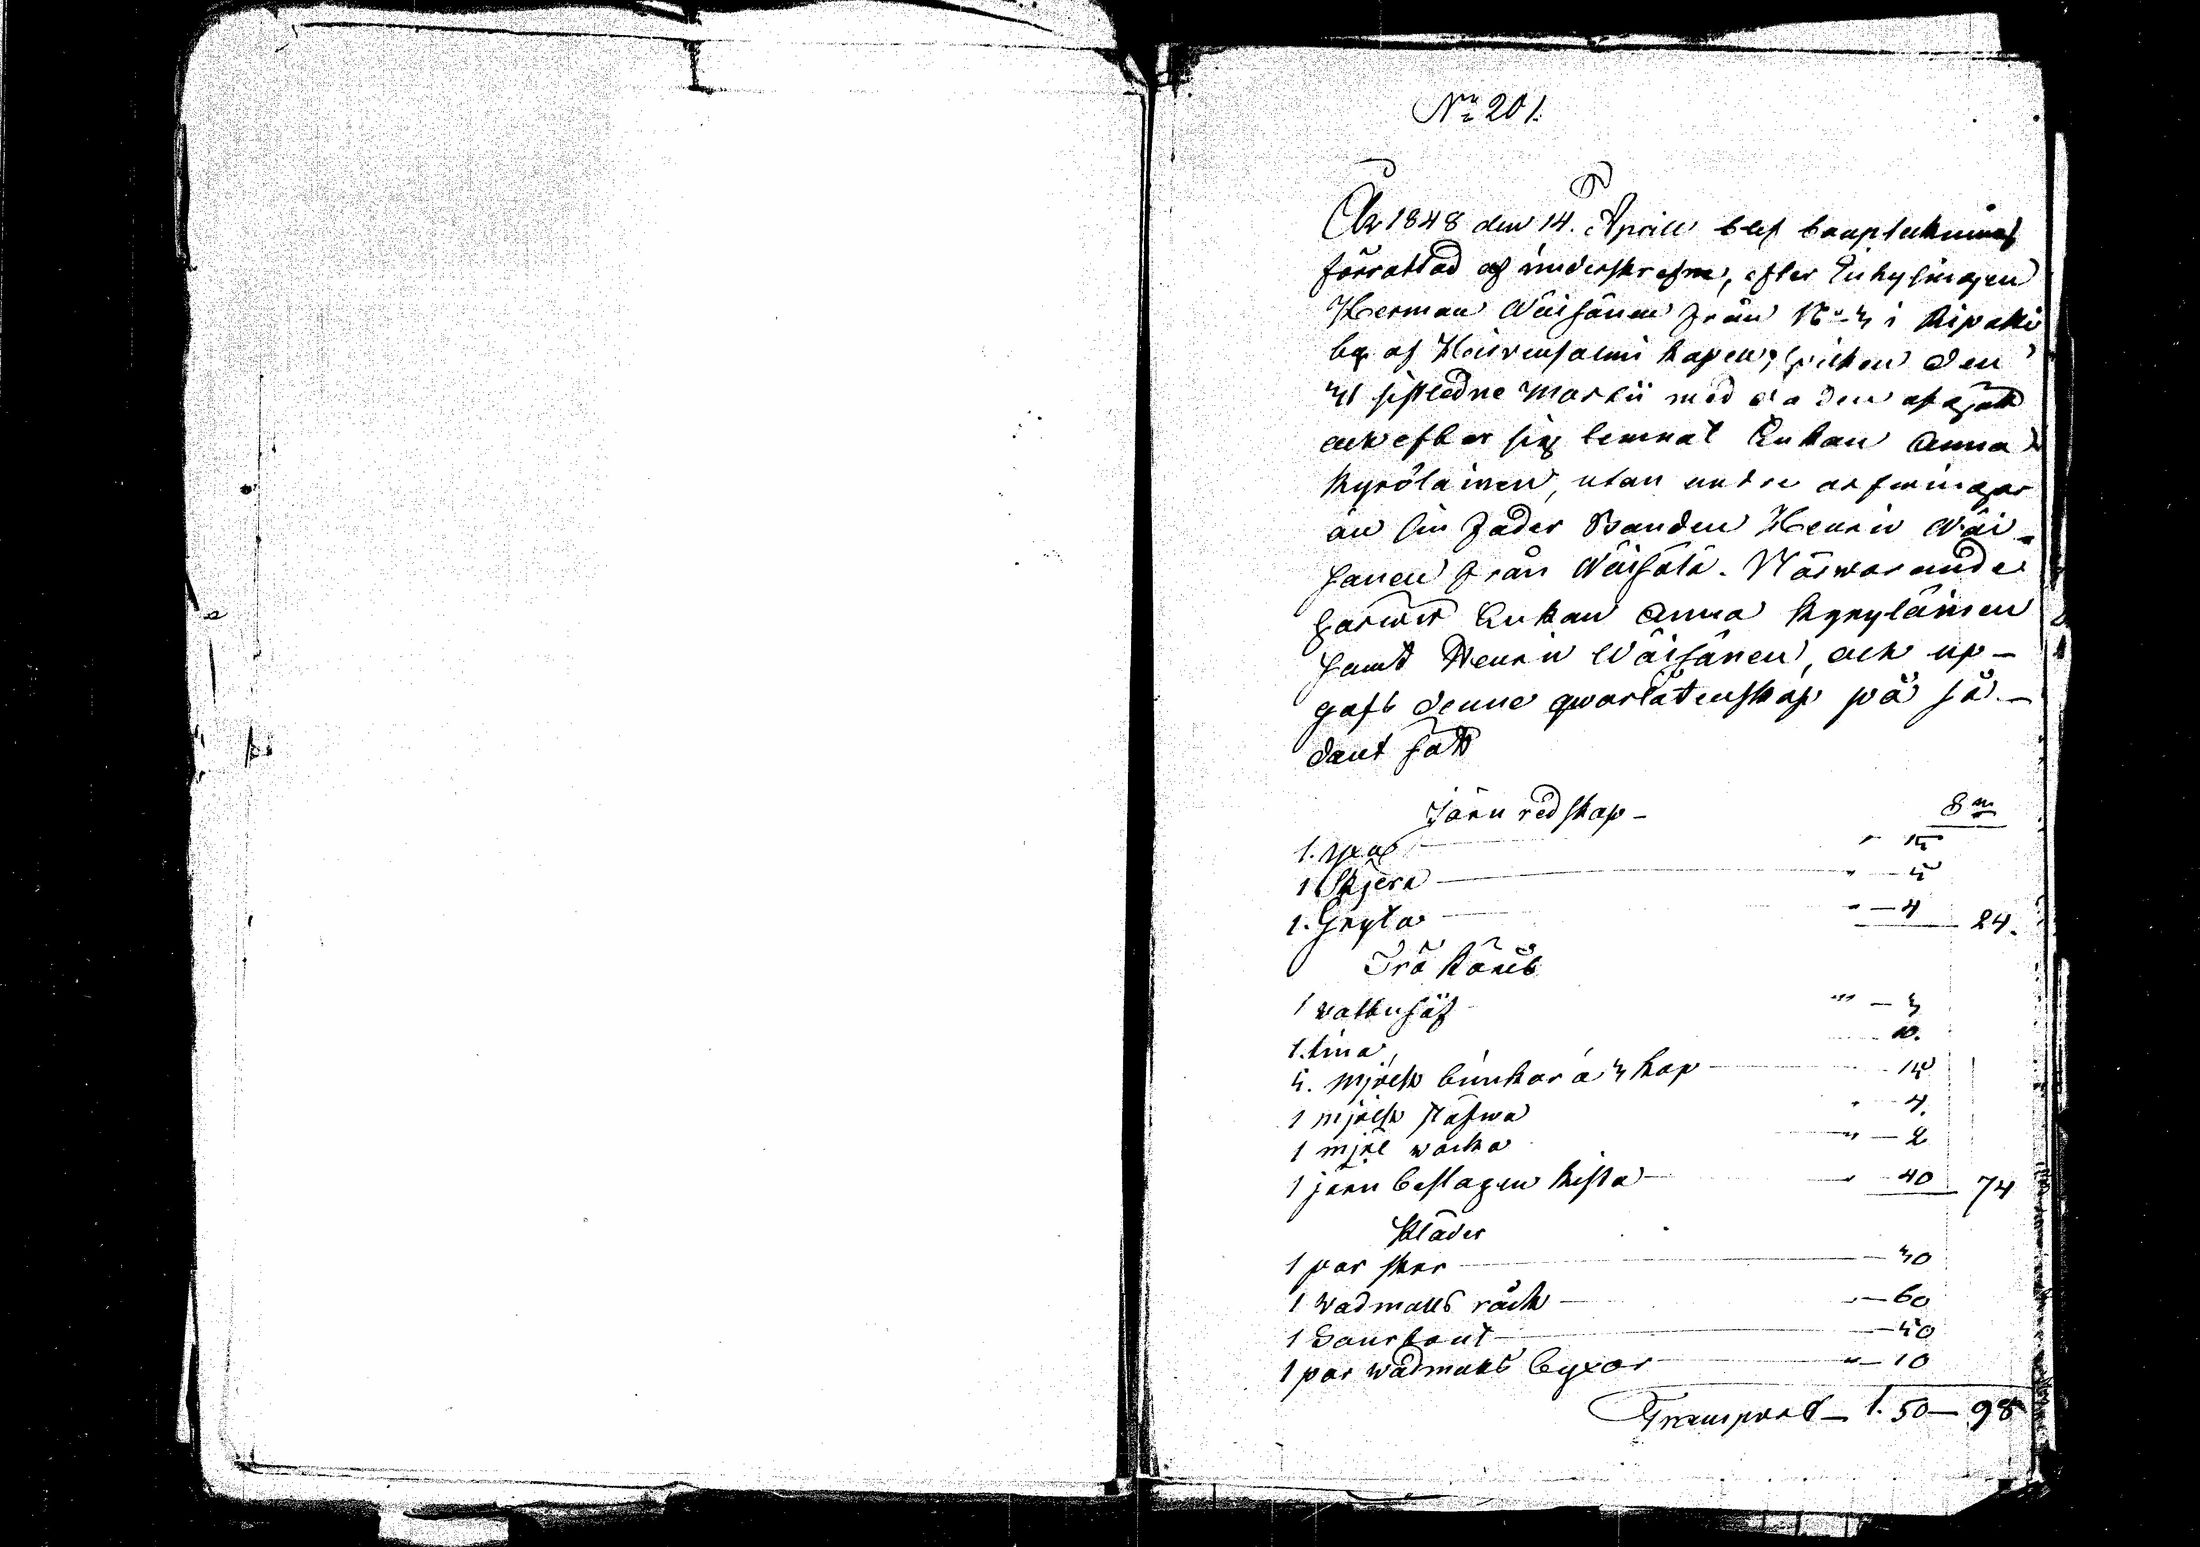 No 201.
År 1848 den 14. Aprill blef bouptekning
förrattad af underskrefne, efter Inhysingen
Herman Wäisänen från No 3 i Ripatti
by af Haivensalmi kapell, hvilken den
31 sistledne Martii med döden afgått
ock efter sig lemnat Enkan Anna
Kyrölainen, utan andre arfwingar
än sin Fader Bonden Henric Wäi-
sanen från Wäisälä. Närwarande
harwid Enkan Anna Kyryläinen
samt Henric Wäisänen, ock up-
gafs denne qwarlatenskap på så-
dant satt
Järn redskap - S m
1. yxa " 15
1 Skjera " 5
1. Gryta " - 4 24.
Trä Käril
1 vattu såf " - 3
1. tina 10.
5. Mjölk bunkar á 3 kap 15
1 mjölk stäfwa " 4.
1 mjöl wacka " - 2
1 järn beslagen kista " 40 74
Kläder
1 par skor - 30
1 Vadmals råck " - 60
1 - 50
1 par wadmals byxor " - 10
Transport - 1. 50 - 98